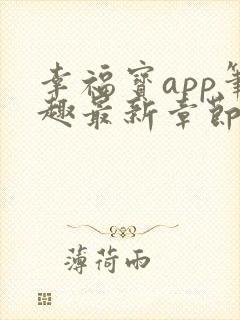 幸福寶app筆
趣最新章節
薄荷雨